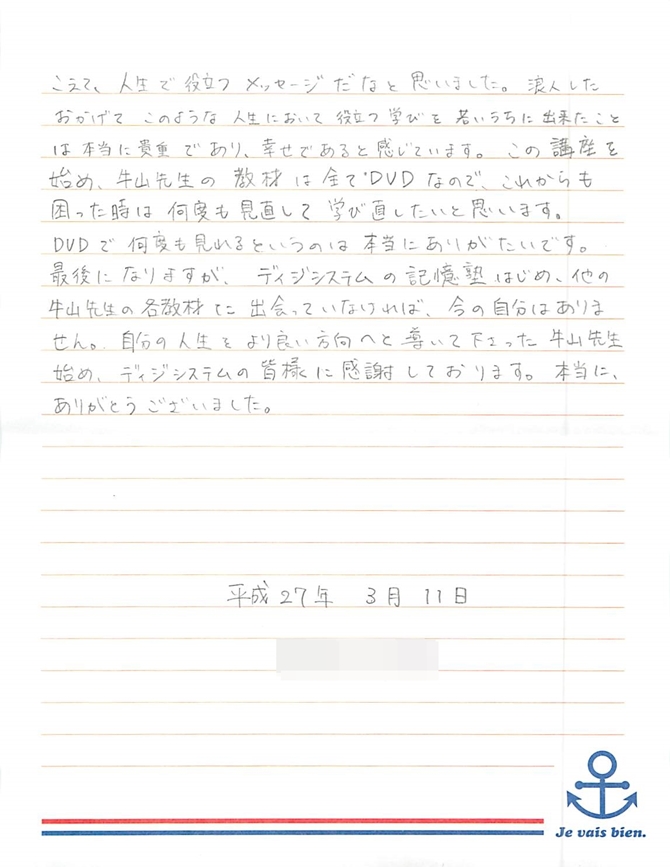 こえて、人生で役立つメッセージだなと思いました。浪人した
おかげで このような人生において役立つ学びを若いうちに出来たこと
は本当に貴重であり、幸せであると感じています。この講座を
始め、牛山先生の教材は全てDVDなので、これからも
困った時は何度も見直して学び直したいと思います。
DVDで何度も見れるというのは本当にありがたいです。
最後になりますが、ディジシステムの記憶塾はじめ、他の
牛山先生の各教材に出会っていなければ、今の自分はありま
せん。自分の人生をより良い方向へと導いて下さった牛山先生
始め、ディジシステムの皆様に感謝しております。本当に、
ありがとうございました。
平成27年 3月 11日
Je vais bien.